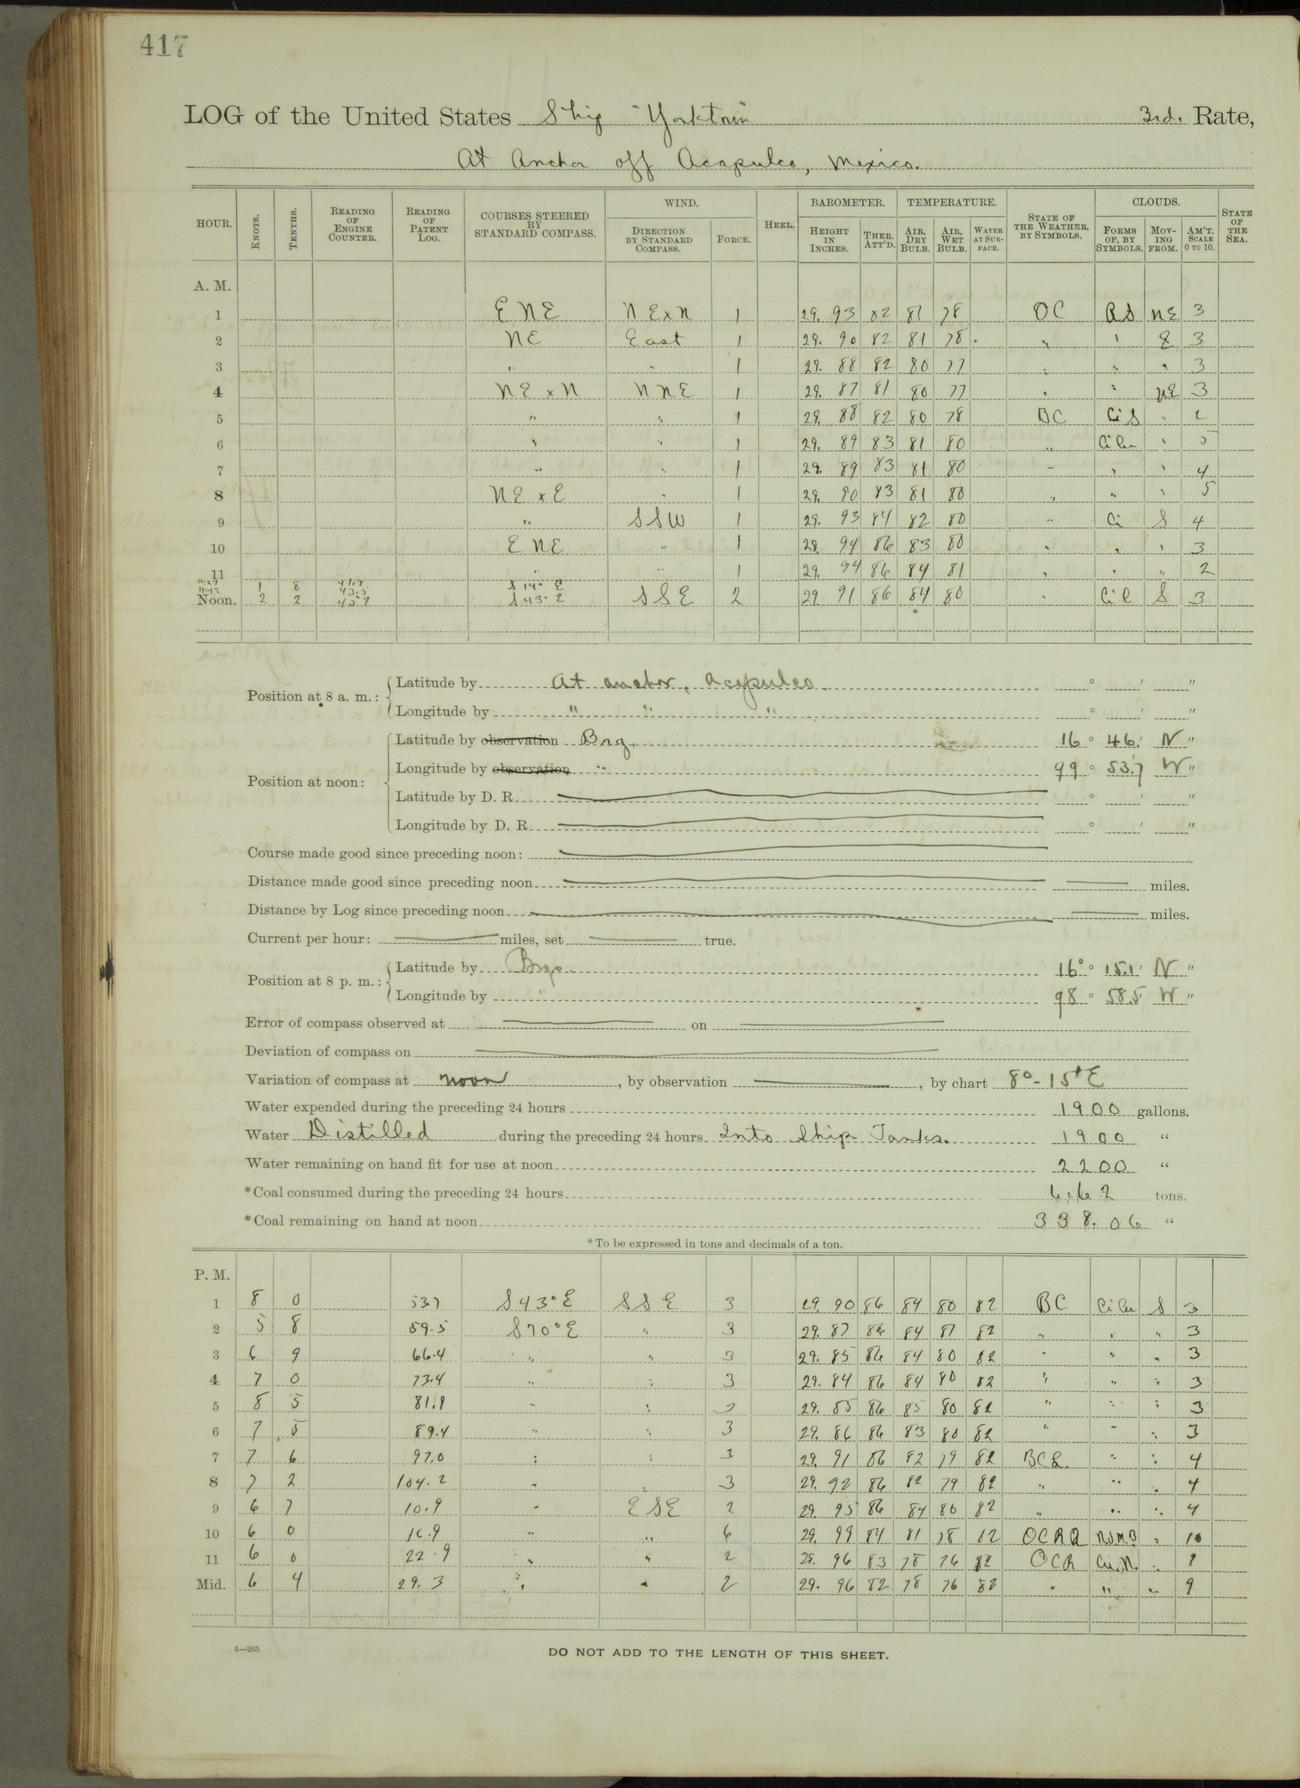 417
LOG of the United States Ship "Yorktown" 3rd. Rate,
At Anchor off Acapulco, Mexico.
HOUR. KNOTS. TENTHS. READING OF ENGINE COUNTER. READING OF PATENT LOG. COURSES STEERED BY STANDARD COMPASS. WIND. DIRECTION BY STANDARD COMPASS. FORCE. HEEL. BAROMETER. HEIGHT IN INCHES. THER. ATT'D. TEMPERATURE. AIR, DRY BULB. AIR, WET BULB. WATER AT SUR-FACE. STATE OF THE WEATHER, BY SYMBOLS. CLOUDS. FORMS OF, BY SYMBOLS. MOV-ING FROM. AM'T. SCALE 0 TO 10. STATE OF THE SEA.
A. M.
1 ENE NExN 1 29. 93 82 81 78 OC NE 3
2 NE East 1 29. 90 82 81 78 " " E 3
3 " " 1 29. 88 82 80 77 " " " 3
4 NE x N NNE 1 29. 87 81 80 77 " " NE 3
5 " " 1 29. 88 82 80 78 BC CiS "
6 " " 1 29. 89 83 81 80 " CiCu " 5
7 " " 1 29. 89 83 81 80 " " " 4
8 NE x E " 1 29. 90 83 81 80 " " " 5
9 " SSW 1 29. 93 84 82 80 " Ci S 4
10 ENE " 1 29. 94 86 83 80 " " " 3
11 " " 1 29. 94 86 84 81 " " " 2
1 8 S 14° E
Noon. 2 2 45.7 S 43° E SSE 2 29. 91 86 84 80 " S 3
Position at 8 a. m.: Latitude by At anchor, Acapulco. ° ' "
Longitude by " " " ° ' "
Position at noon: Latitude by observation Brg. 16 ° 46.' N "
Longitude by observation " 99 ° 53.7' W "
Latitude by D. R. ° ' "
Longitude by D. R. ° ' "
Course made good since preceding noon:
Distance made good since preceding noon miles.
Distance by Log since preceding noon miles.
Current per hour: miles, set true.
Position at 8 p. m.: Latitude by Brgs. 16° 15.1' N "
Longitude by " 98 ° 58.5' W "
Error of compass observed at on
Deviation of compass on
Variation of compass at noon, by observation, by chart 8°-15' E
Water expended during the preceding 24 hours 1900 gallons.
Water Distilled during the preceding 24 hours Into Ship Tanks. 1900 "
Water remaining on hand fit for use at noon 2200 "
*Coal consumed during the preceding 24 hours 6.62 tons.
*Coal remaining on hand at noon 338.06 "
*To be expressed in tons and decimals of a ton.
P. M.
1 8 0 53.7 S 43° E SSE 3 29. 90 86 84 80 82 BC CiCu S 3
2 5 8 59.5 S 70° E " 3 29. 87 86 84 81 82 " " " 3
3 6 9 66.4 " " 3 29. 85 86 84 80 82 " " " 3
4 7 0 73.4 " " 3 29. 84 86 84 80 82 " " " 3
5 8 5 81.9 " " 3 29. 85 86 85 80 82 " " " 3
6 7 5 89.4 " " 3 29. 86 86 83 80 82 " " " 3
7 7 6 97.0 " " 3 29. 91 86 82 79 82 BCL " " 4
8 7 2 104.2 " " 3 29. 92 86 82 79 82 " " " 4
9 6 7 10.9 " ESE 2 29. 95 86 84 80 82 " " " 4
10 6 0 16.9 " " 6 29. 99 84 81 78 82 OCRQ " 10
11 6 0 22.9 " " 2 29. 96 83 78 76 82 OCR " 9
Mid. 6 4 29.3 " " 2 29. 96 82 78 76 82 " " " 9
4—265
DO NOT ADD TO THE LENGTH OF THIS SHEET.